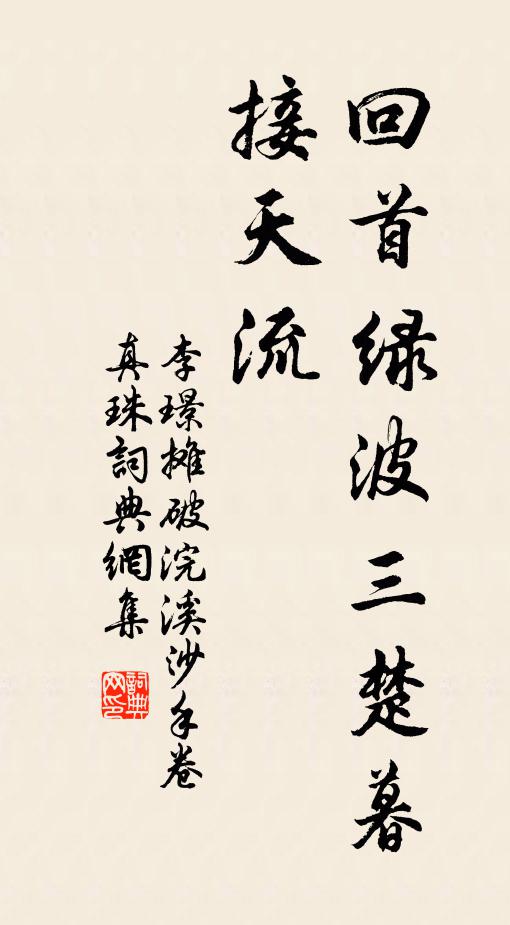 回首绿波三楚暮
接天流
李璟摊破浣溪沙手卷
真珠詞典網集
詞典
网印